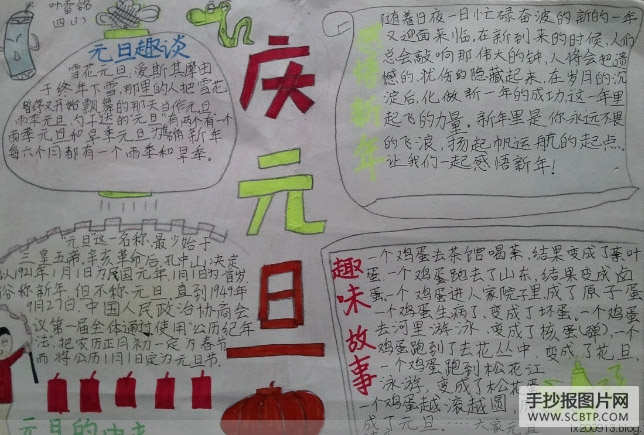 叶雪铭
四(3)
元旦趣谈
雪花元旦,爱斯基摩由
于终年下雪,那里的人把雪花
飘落的那天当作元旦
雨季元旦,乌干达的"元旦"有两个有一个
雨季元旦和旱季元旦,为
每六个月都有一个雨季和旱季。
庆元旦
感悟新年
随着日夜一日忙碌奋波的新的一年
又迎面来临,在新到来的时候,人们
总会敲响那伟大的钟,人得会把遗
憾的,忧伤的隐藏起来,在岁月的沉
淀后,化做新一年的成功,这一年里
起飞的力量。新年里是你永远不畏
的飞浪,扬起帆运航的起点。
让我们一起感悟新年!
元旦这一名称,最少始于
三皇五帝,辛亥革命后,孔中山决定
以1921年1月1日为民国元年,1月1日为首岁,
俗称新年,但不称元旦,直到1949年
9月27日,中国人民政治协商会
议第一届全体通过使用"公历纪年
法,把农历正月初一定为春节,
而将公历1月1日定为元旦节.
元旦的由来
趣味故事
一个鸡蛋去茶馆喝茶,结果变成了茶叶
蛋,一个鸡蛋跑去了山东,结果变成卤
蛋,一个鸡蛋进人家院子里,成了原子蛋
一个鸡蛋生病了,变成了坏蛋,一个鸡蛋
去河里游泳,变成了核蛋(弹),一个
鸡蛋跑到了去花丛中,变成了花旦
一个鸡蛋跑到松花江
游泳,变成了松花蛋
一个鸡蛋越滚越圆,
成了元旦……大家元旦
手抄报图片网
WWW.SCBTP.COM
fx200913.blog